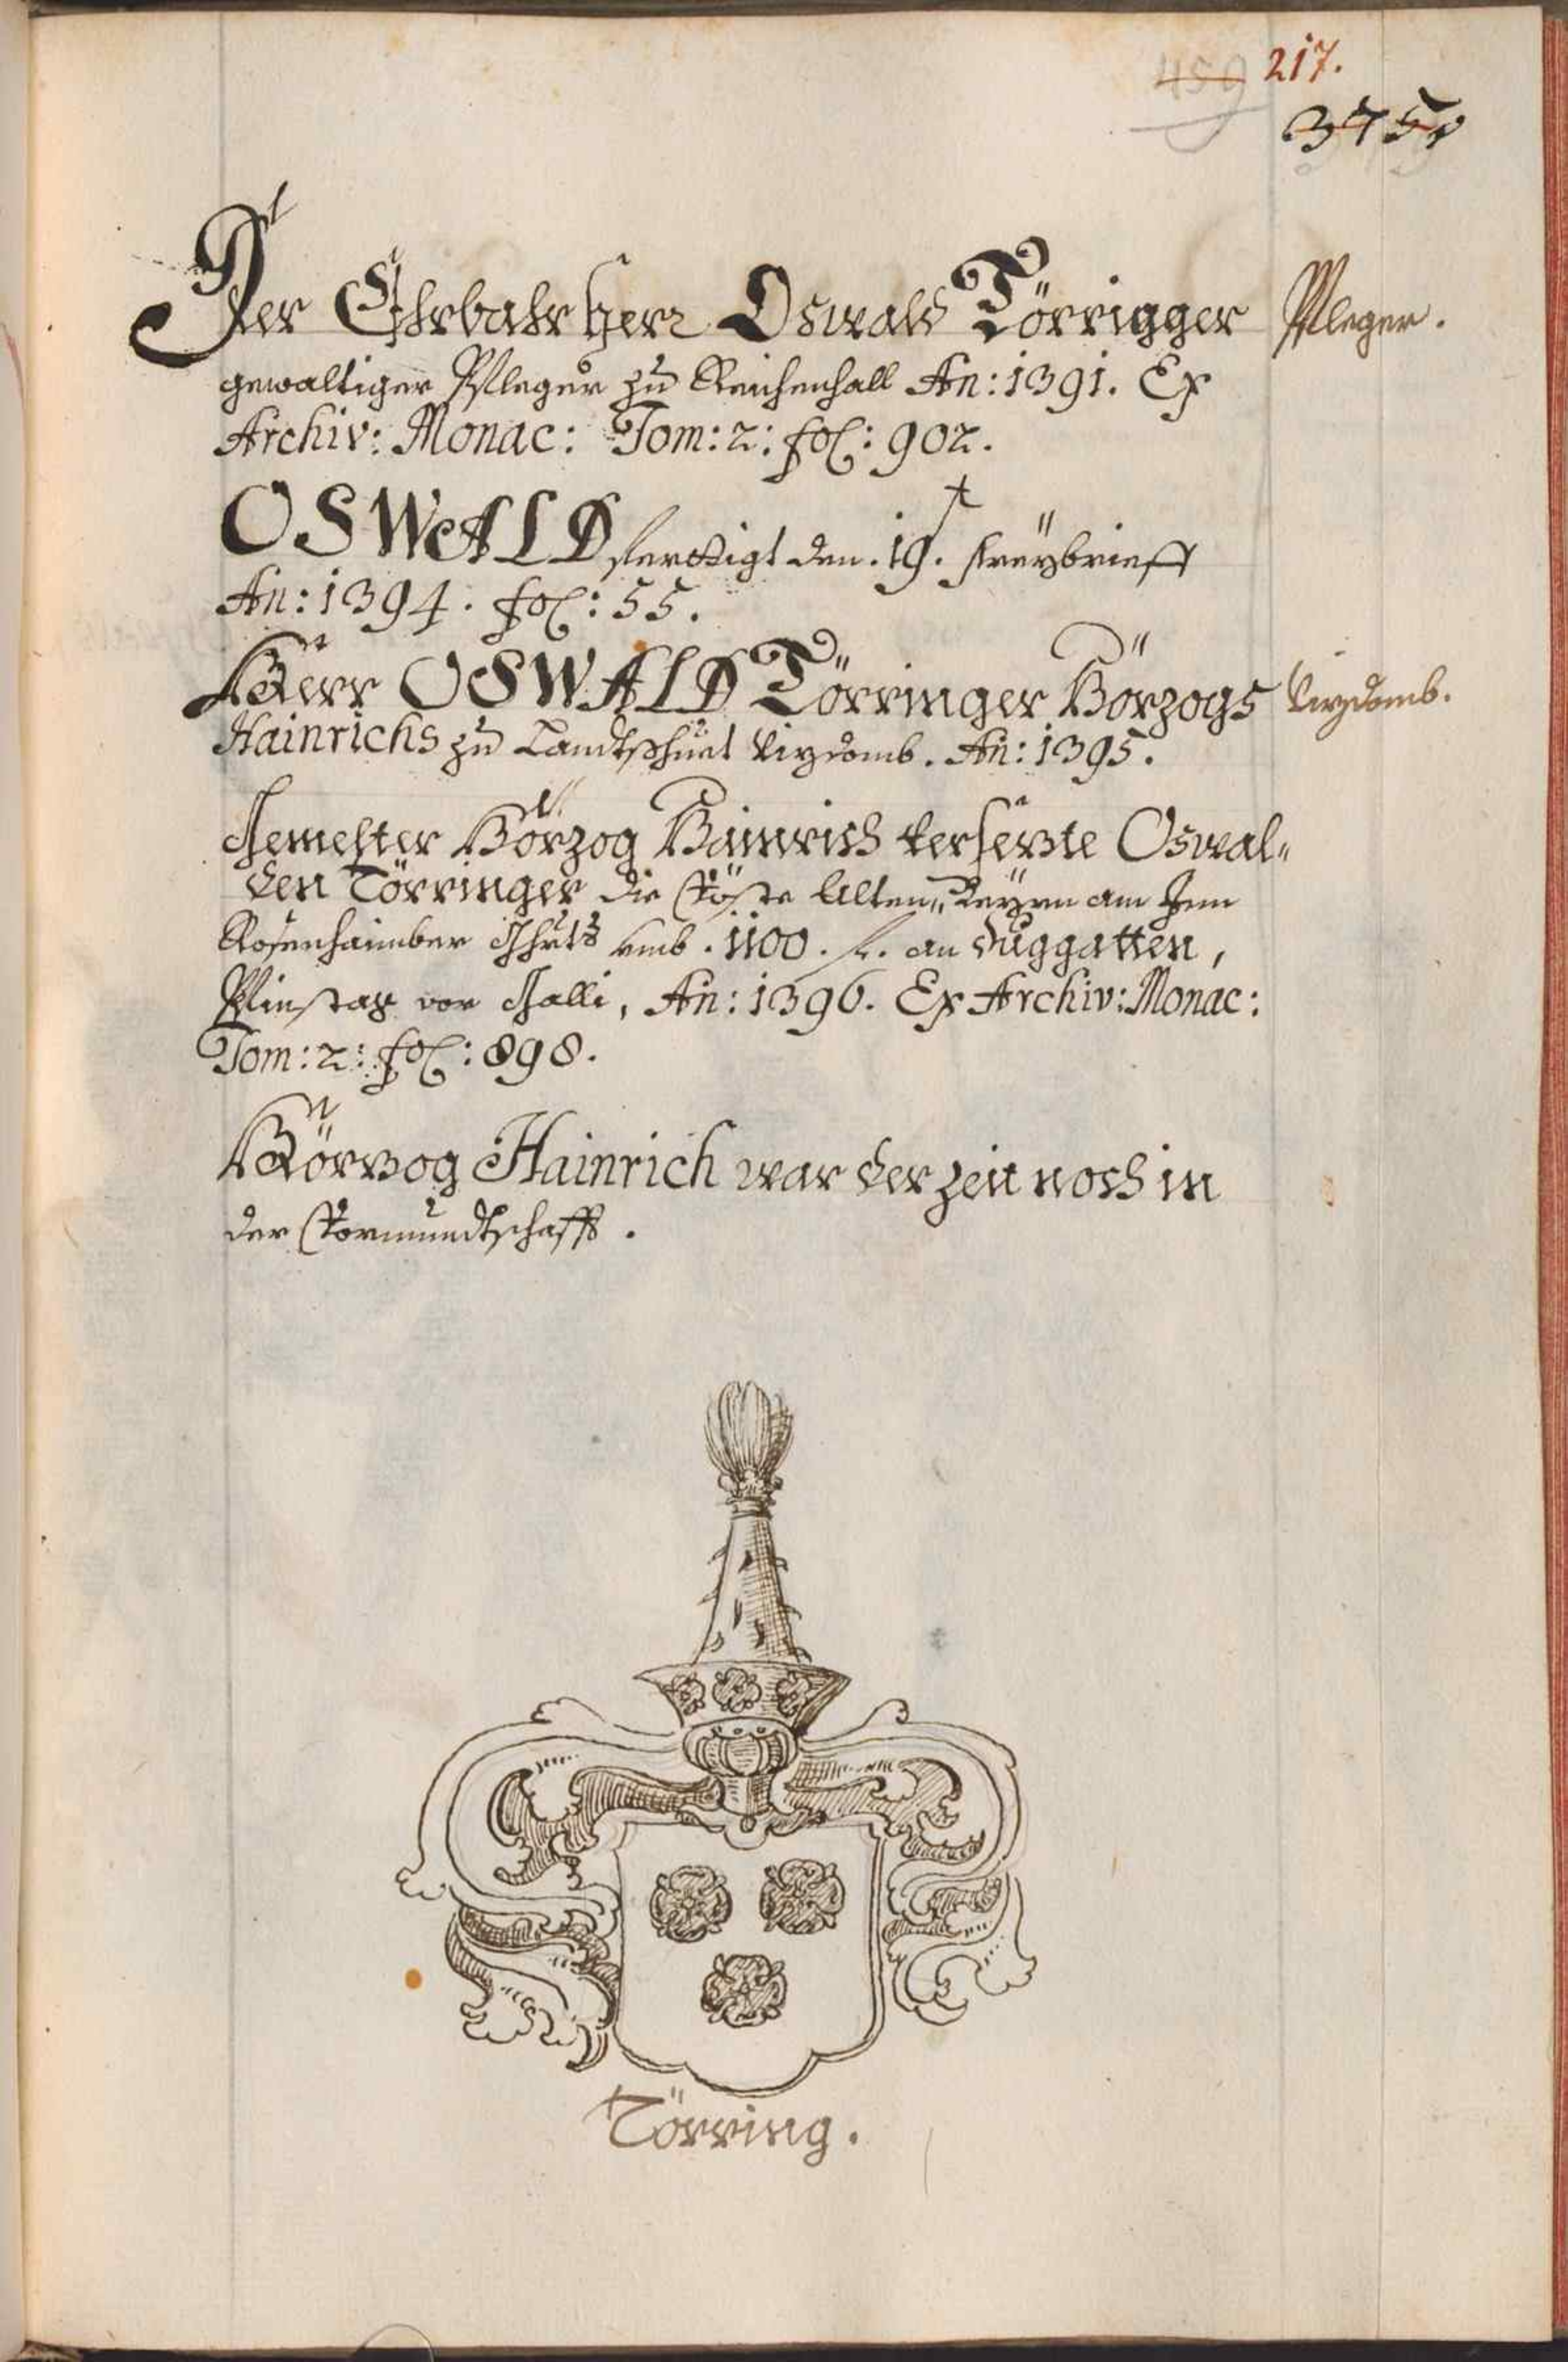 459 217.
375
Der Ehrbahr Herr Oswald Törrigger Pfleger.
gewaltiger Pfleger zu Reichenhall An: 1391. Ex
Archiv: Monac: Tom: 2: fol: 902.
OSWALD ferttigt den. 19. freÿbrieff
An: 1394. fol: 55.
Herr OSWALD Törringer Hörzogs Vizdomb.
Hainrichs zu Landtshuet Vizdomb. An: 1395.
Gemelter Hörzog Hainrich versezte Oswal„
den Törringer die Vöste Alten„Beÿrn am Inn
Rosenhaimber Ghrts vmb. 1100. fl. an Duggatten,
Pfinstag vor Galli, An: 1396. Ex Archiv: Monac:
Tom: 2: fol: 898.
Hörzog Hainrich war der zeit noch in
der Vormundtschafft.
Törring.